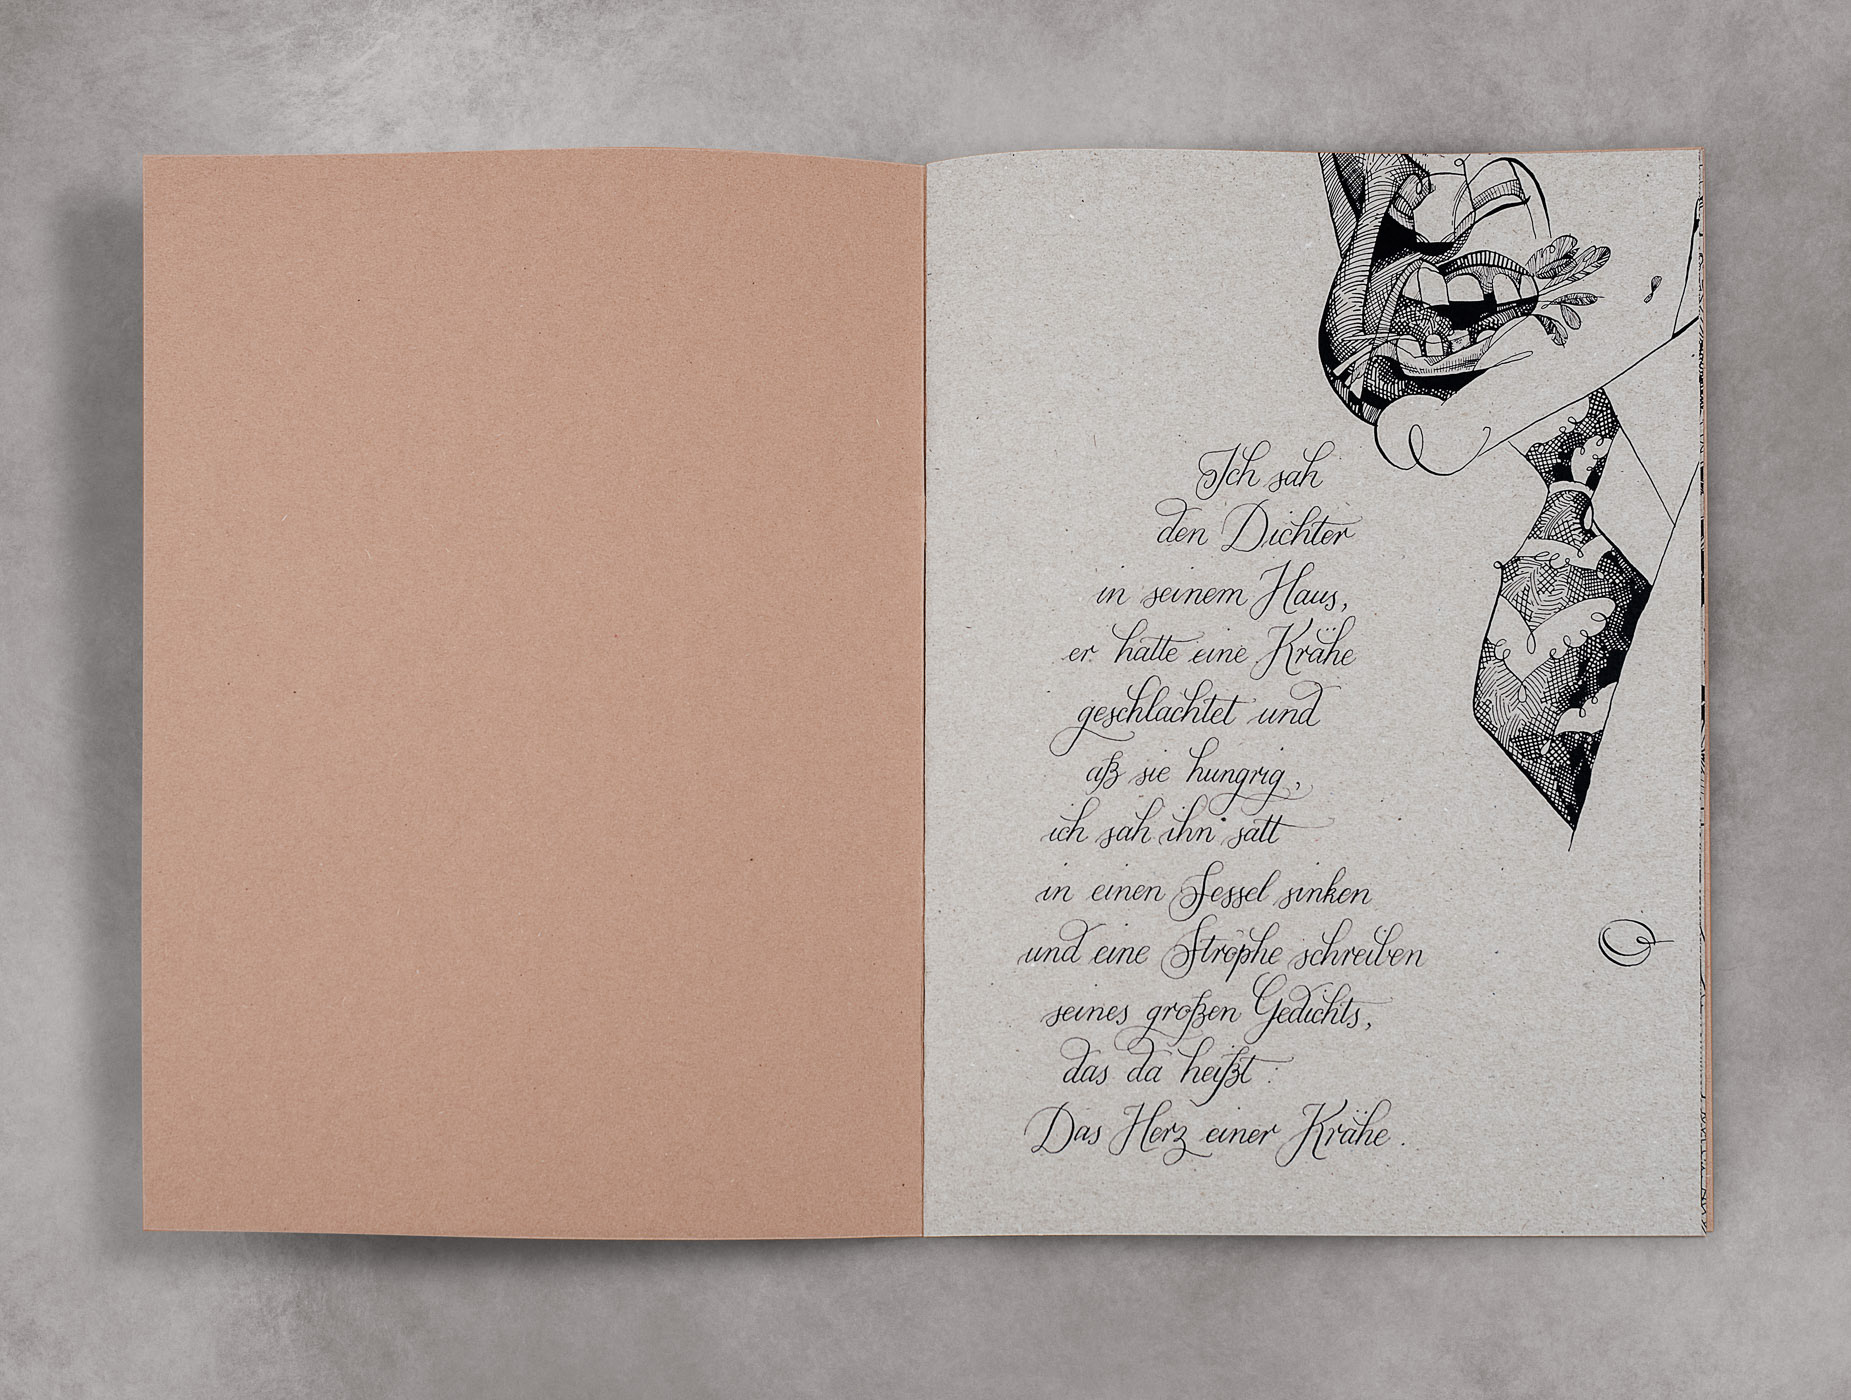 Ich sah
den Dichter
in seinem Haus,
er hatte eine Krähe
geschlachtet und
aß sie hungrig,
ich sah ihn satt
in einen Sessel sinken
und eine Strophe schreiben
seines großen Gedichts,
das da heißt:
Das Herz einer Krähe.